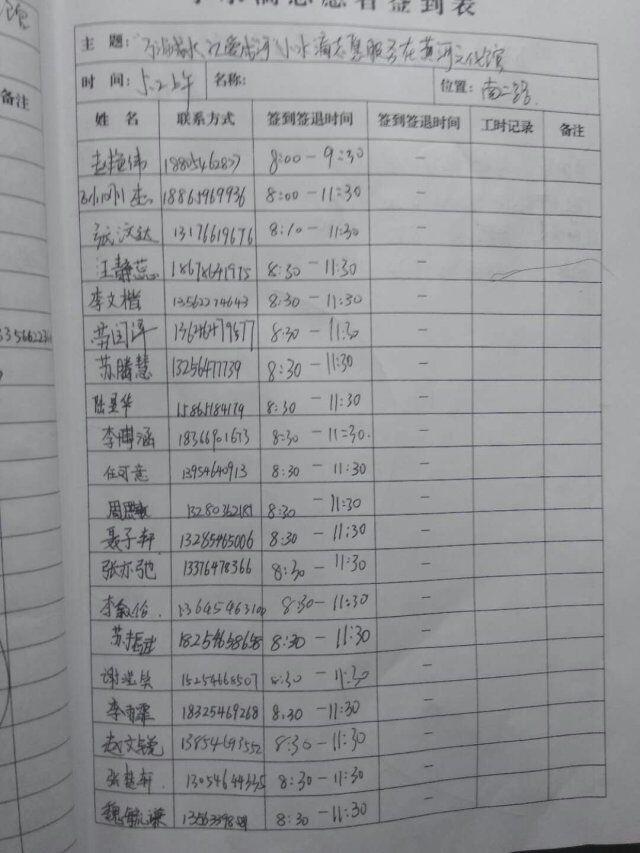 志愿者签到表
备注
主 题: 小水滴志愿服务在黄河文化馆
时 间: 5.2上午 名称: 位置: 南二路.
姓 名 联系方式 签到签退时间 签到签退时间 工时记录 备注
18805462807 8:00-9:30 -
18865969936 8:00-11:30 -
张汶达 13176619676 8:10-11:30 -
汪静蕊 18678641975 8:30-11:30 -
李文楷 13562274643 8:30-11:30 -
8:30-11:30 -
苏腾慧 13256477739 8:30-11:30 -
陆星华 15865184179 8:30-11:30 -
李博涵 18366901673 8:30-11:30. -
任可意 13954640913 8:30-11:30 -
13280362181 8:30-11:30 -
聂子轩 13285465006 8:30-11:30 -
张亦弛 13376478366 8:30-11:30 -
8:30-11:30 -
18254638658 8:30-11:30 -
15254668507 8:30-11:30 -
李雨霏 18325469268 8:30-11:30 -
赵文锐 13854693552 8:30-11:30 -
张楚轩. 13054644335 8:30-11:30 -
魏毓谦 8:30-11:30 -